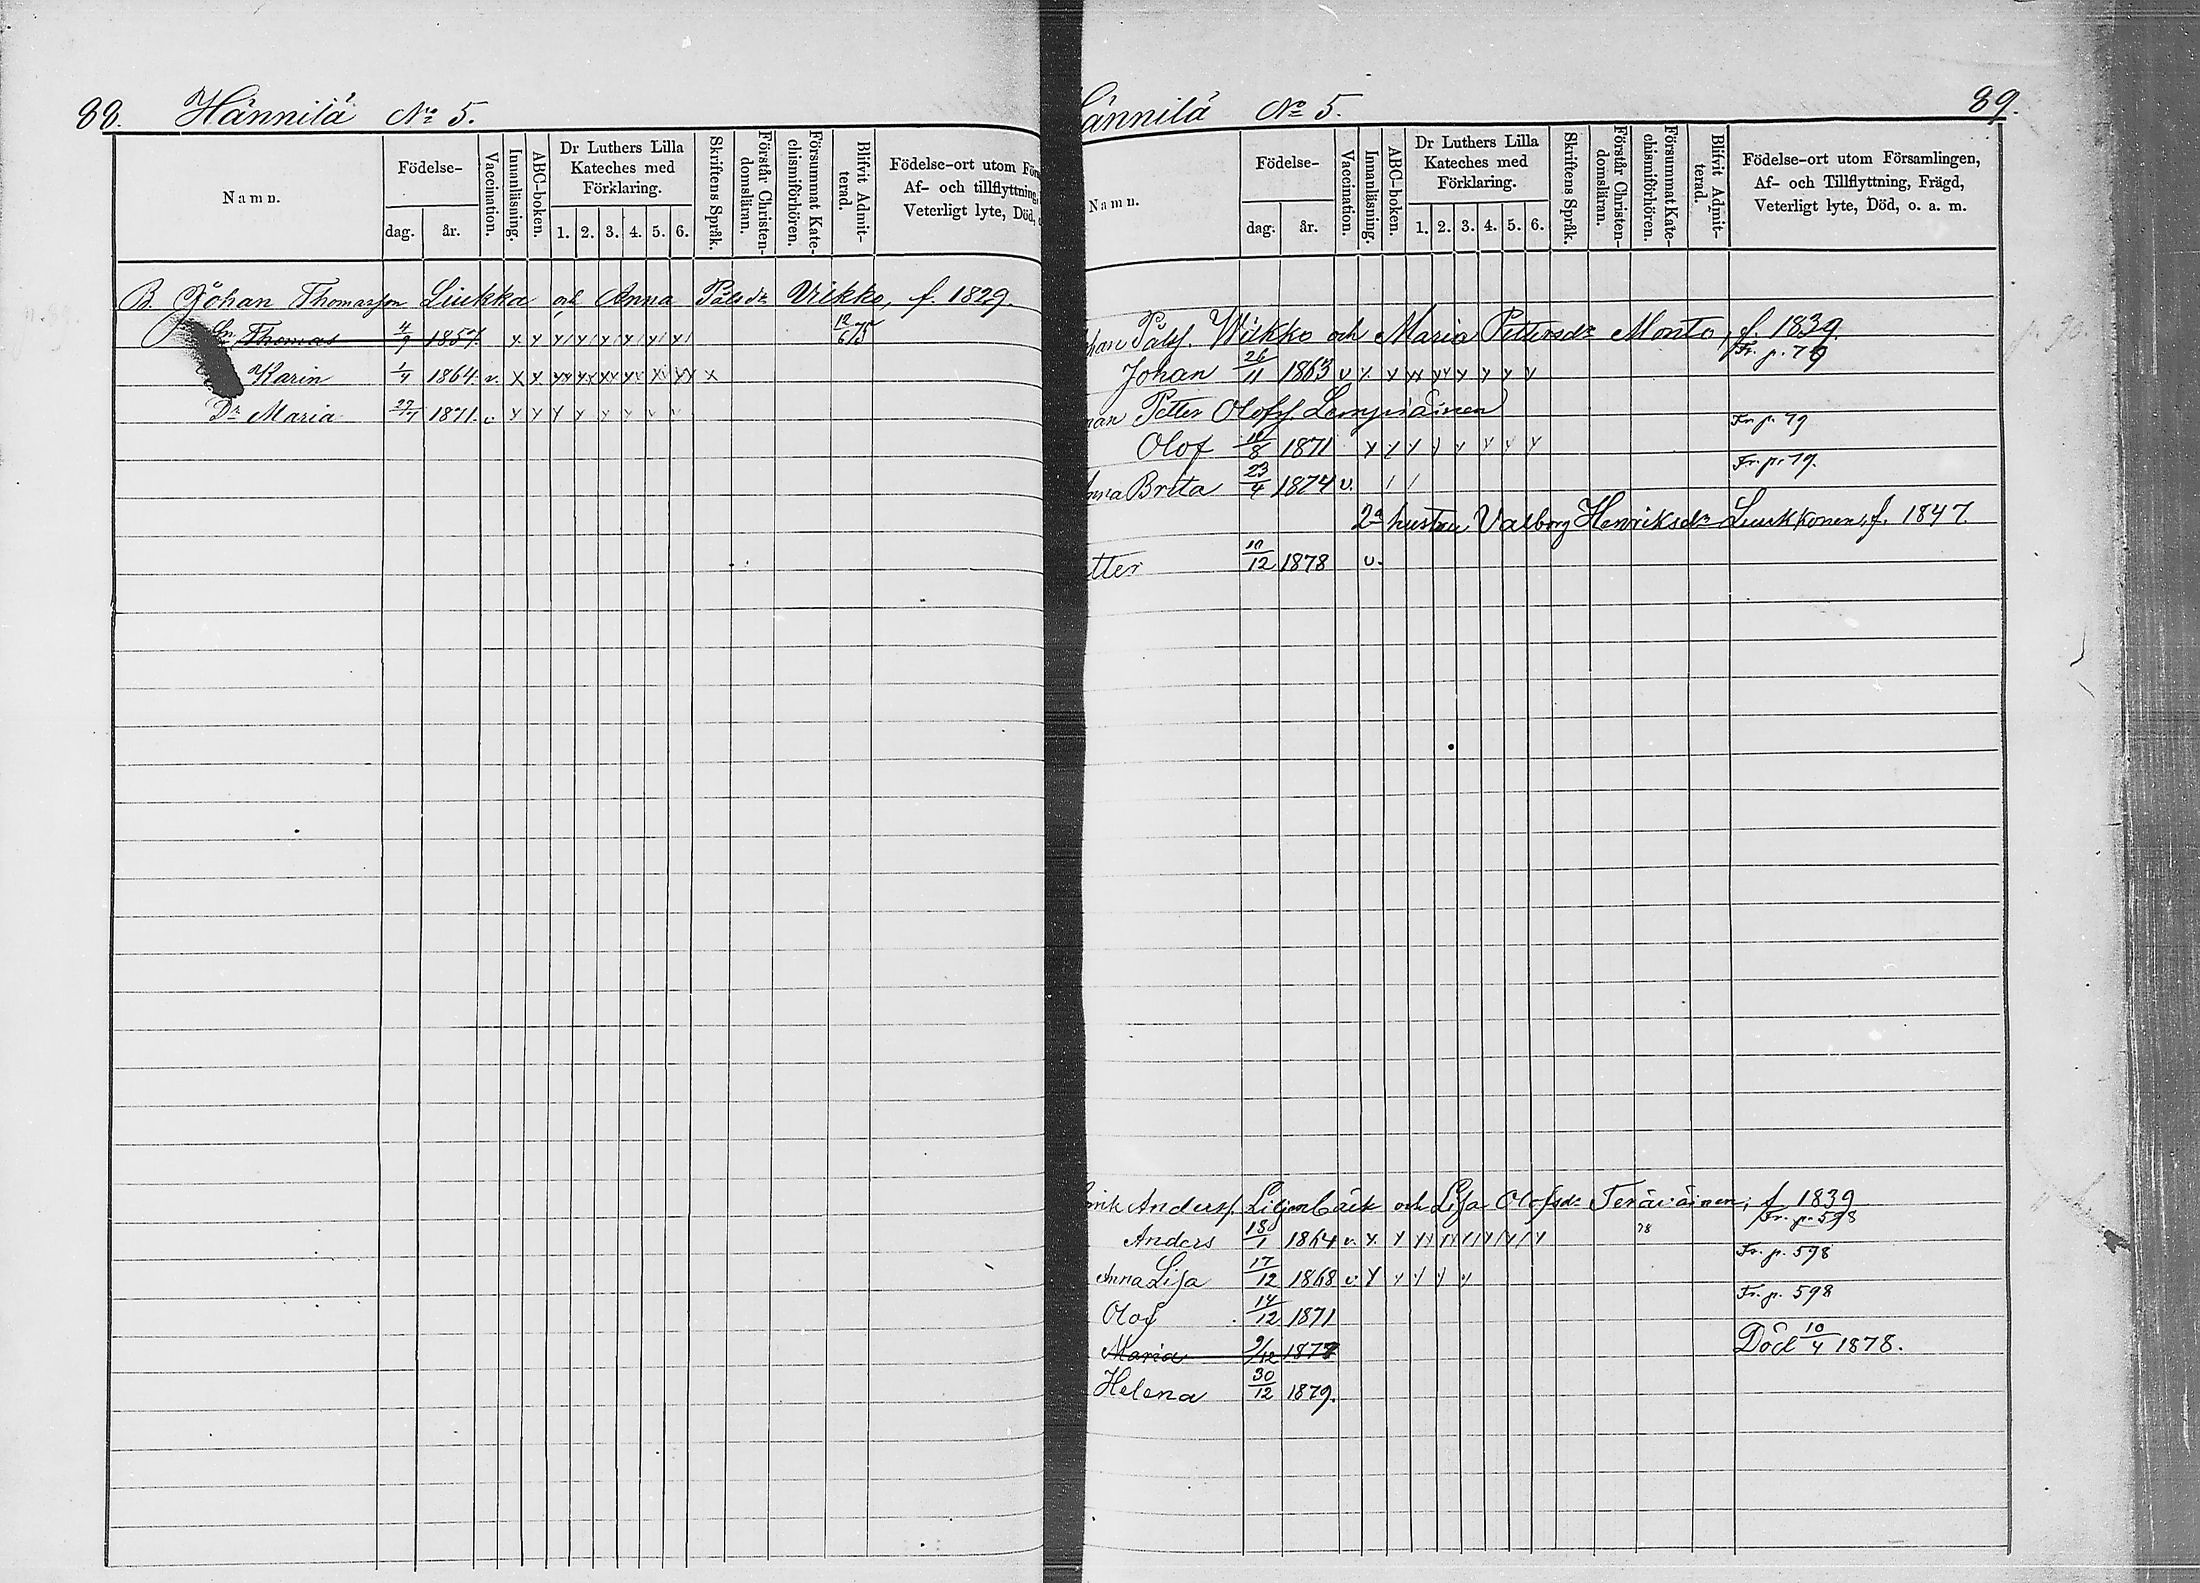 88. Hännilä No 5.
Namn.
Födelse-
dag.
år.
Vaccination.
Innanläsning.
ABC-boken.
Dr Luthers Lilla
Kateches med
Förklaring.
1. 2. 3. 4. 5. 6.
Skriftens Språk.
Förstår Christen-
domsläran.
Försummat Kate-
chismiförhören.
Blifvit Admit-
terad.
Födelse-ort utom För
Af- och tillflyttning,
Veterligt lyte, Död,
B. Johan Thomasson Liukka och Anna Pålsdr Vikko, f. 1829.
Sn Thomas 4/9 1857. 12/6 75
Karin 1/4 1864 v.
Dr Maria 1871. v
ännilä No 5. 89.
Namn.
Födelse-
dag.
år.
Vaccination.
Innanläsning.
ABC-boken.
Dr Luthers Lilla
Kateches med
Förklaring.
1. 2. 3. 4. 5. 6.
Skriftens Språk.
Förstår Christen-
domsläran.
Försummat Kate-
chismiförhören.
Blifvit Admit-
terad.
Födelse-ort utom Församlingen,
Af- och Tillflyttning, Frägd,
Veterligt lyte, Död, o. a. m.
han Pålss. Wikko och Maria Pettersdr Monto, f. 1839.
Johan 26/11 1863 v Fr. p. 79
Petter Olofss. Lempiäinen
Olof 1871 Fr. p. 79
nna Brita 23/4 1874 v. Fr. p. 79.
2a hustru Valborg Henriksdr Luukkonen, f. 1847.
etter 1878 v.
nrik Anderss. Liljanbäck och Lisa Olofsdr Teräväinen, f. 1839
Anders 18/1 1864 v. 78 Fr. p. 598
Anna Lisa 17/12 1868 v. Fr. p. 598
Olof 14/12 1871 Fr. p. 598
Maria 9/12 1877 Död 10/4 1878.
Helena 30/12 1879.